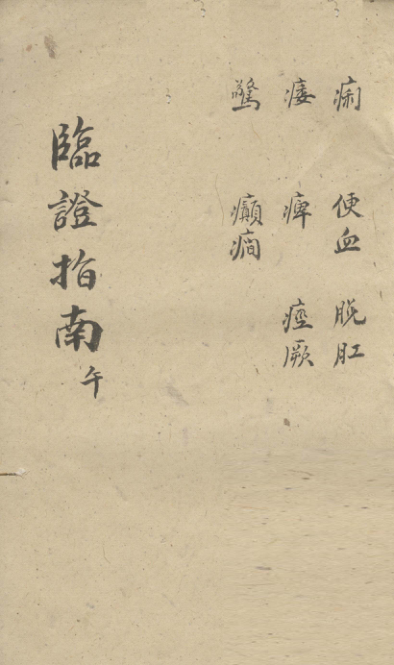 痢 便血 脫肛
痿 痺 痙厥
驚 癲癎
臨證指南 午